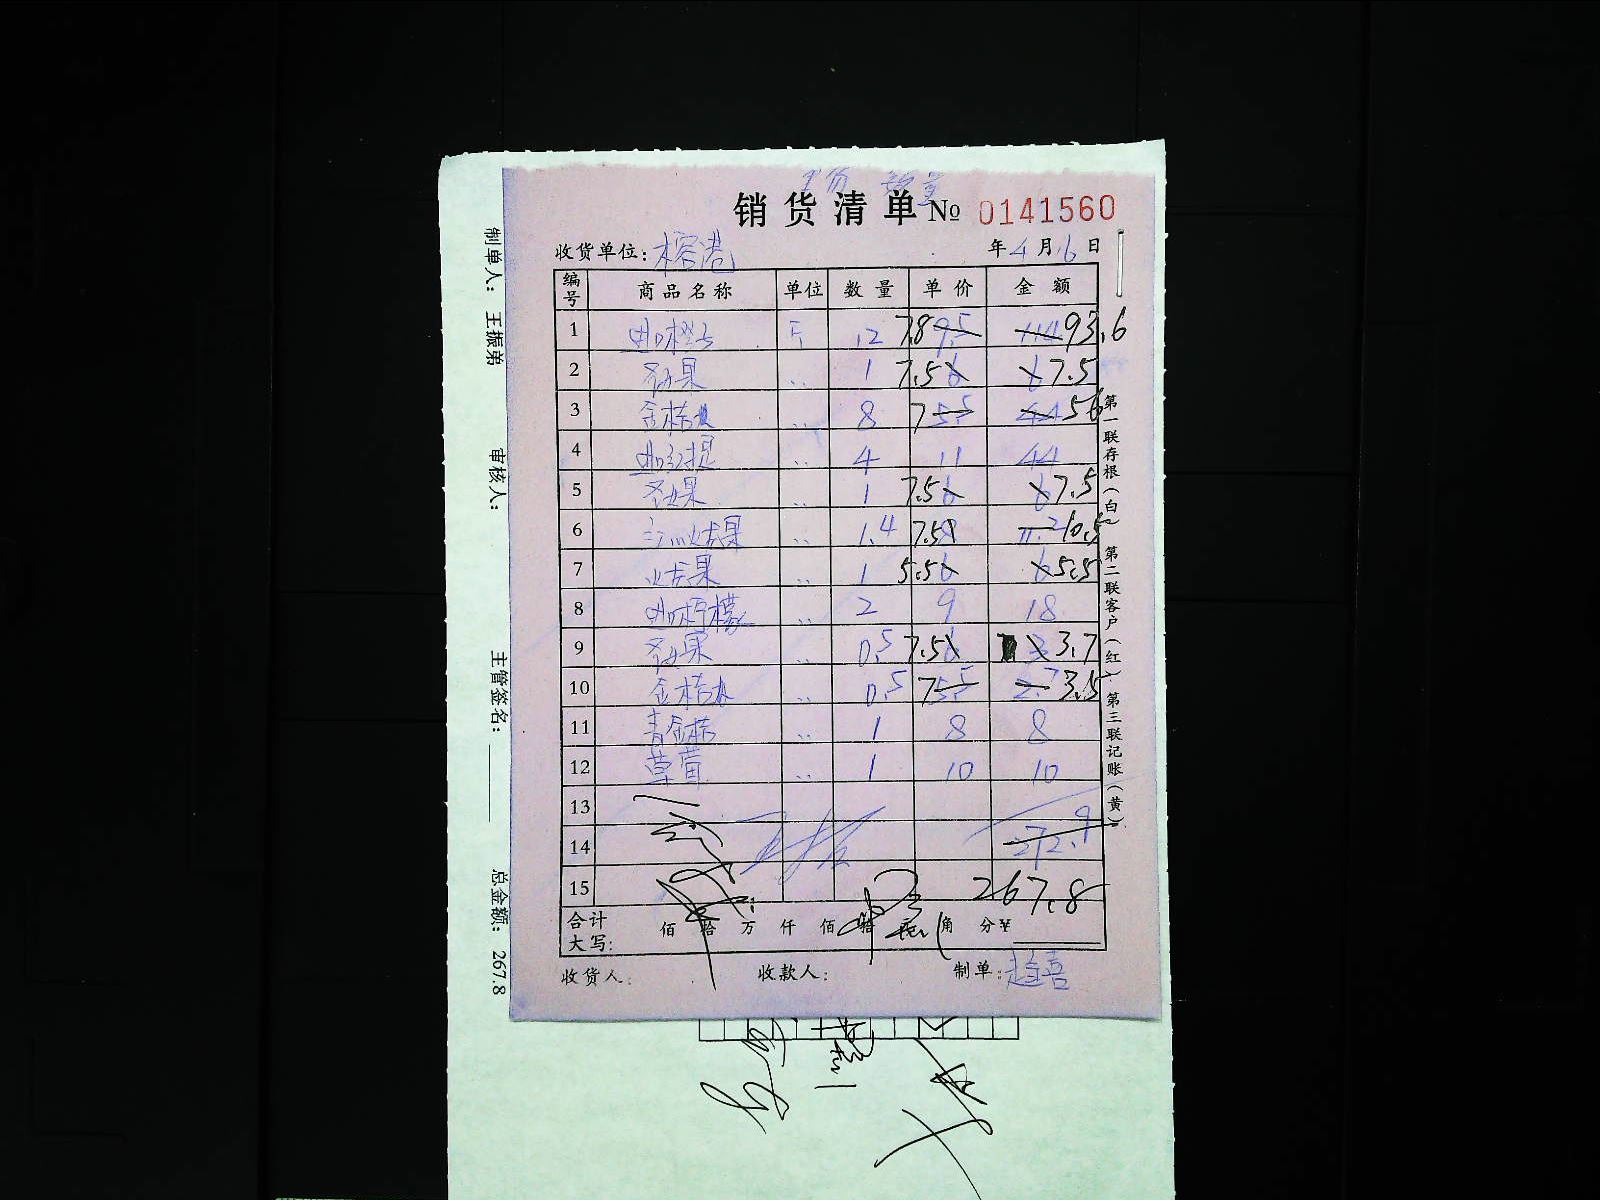 销货清单 № 0141560
收货单位: 榕港 年 4 月 6 日
编号 商品名称 单位 数量 单价 金额
1 斤 12 7.8 9.5 114 93.6
2 圣女果 〃 1 7.5 6 6 7.5
3 金桔 〃 8 7 5.5 44 56
4 〃 4 11 44
5 圣女果 〃 1 7.5 6 6 7.5
6 火龙果 〃 1.4 7.5 8 11.2 10.5
7 火龙果 〃 1 5.5 6 6 5.5
8 柠檬 〃 2 9 18
9 圣女果 〃 0.5 7.5 6 3 3.7
10 金桔 〃 0.5 7 5.5 2.7 3.5
11 青金桔 〃 1 8 8
12 草莓 〃 1 10 10
13
14 272.9
15 267.8
合计大写: 佰 拾 万 仟 佰 拾 元 角 分 ¥
收货人: 收款人: 制单:
第一联存根(白) 第二联客户(红) 第三联记账(黄)
制单人: 王振弟 审核人: 主管签名: 总金额: 267.8